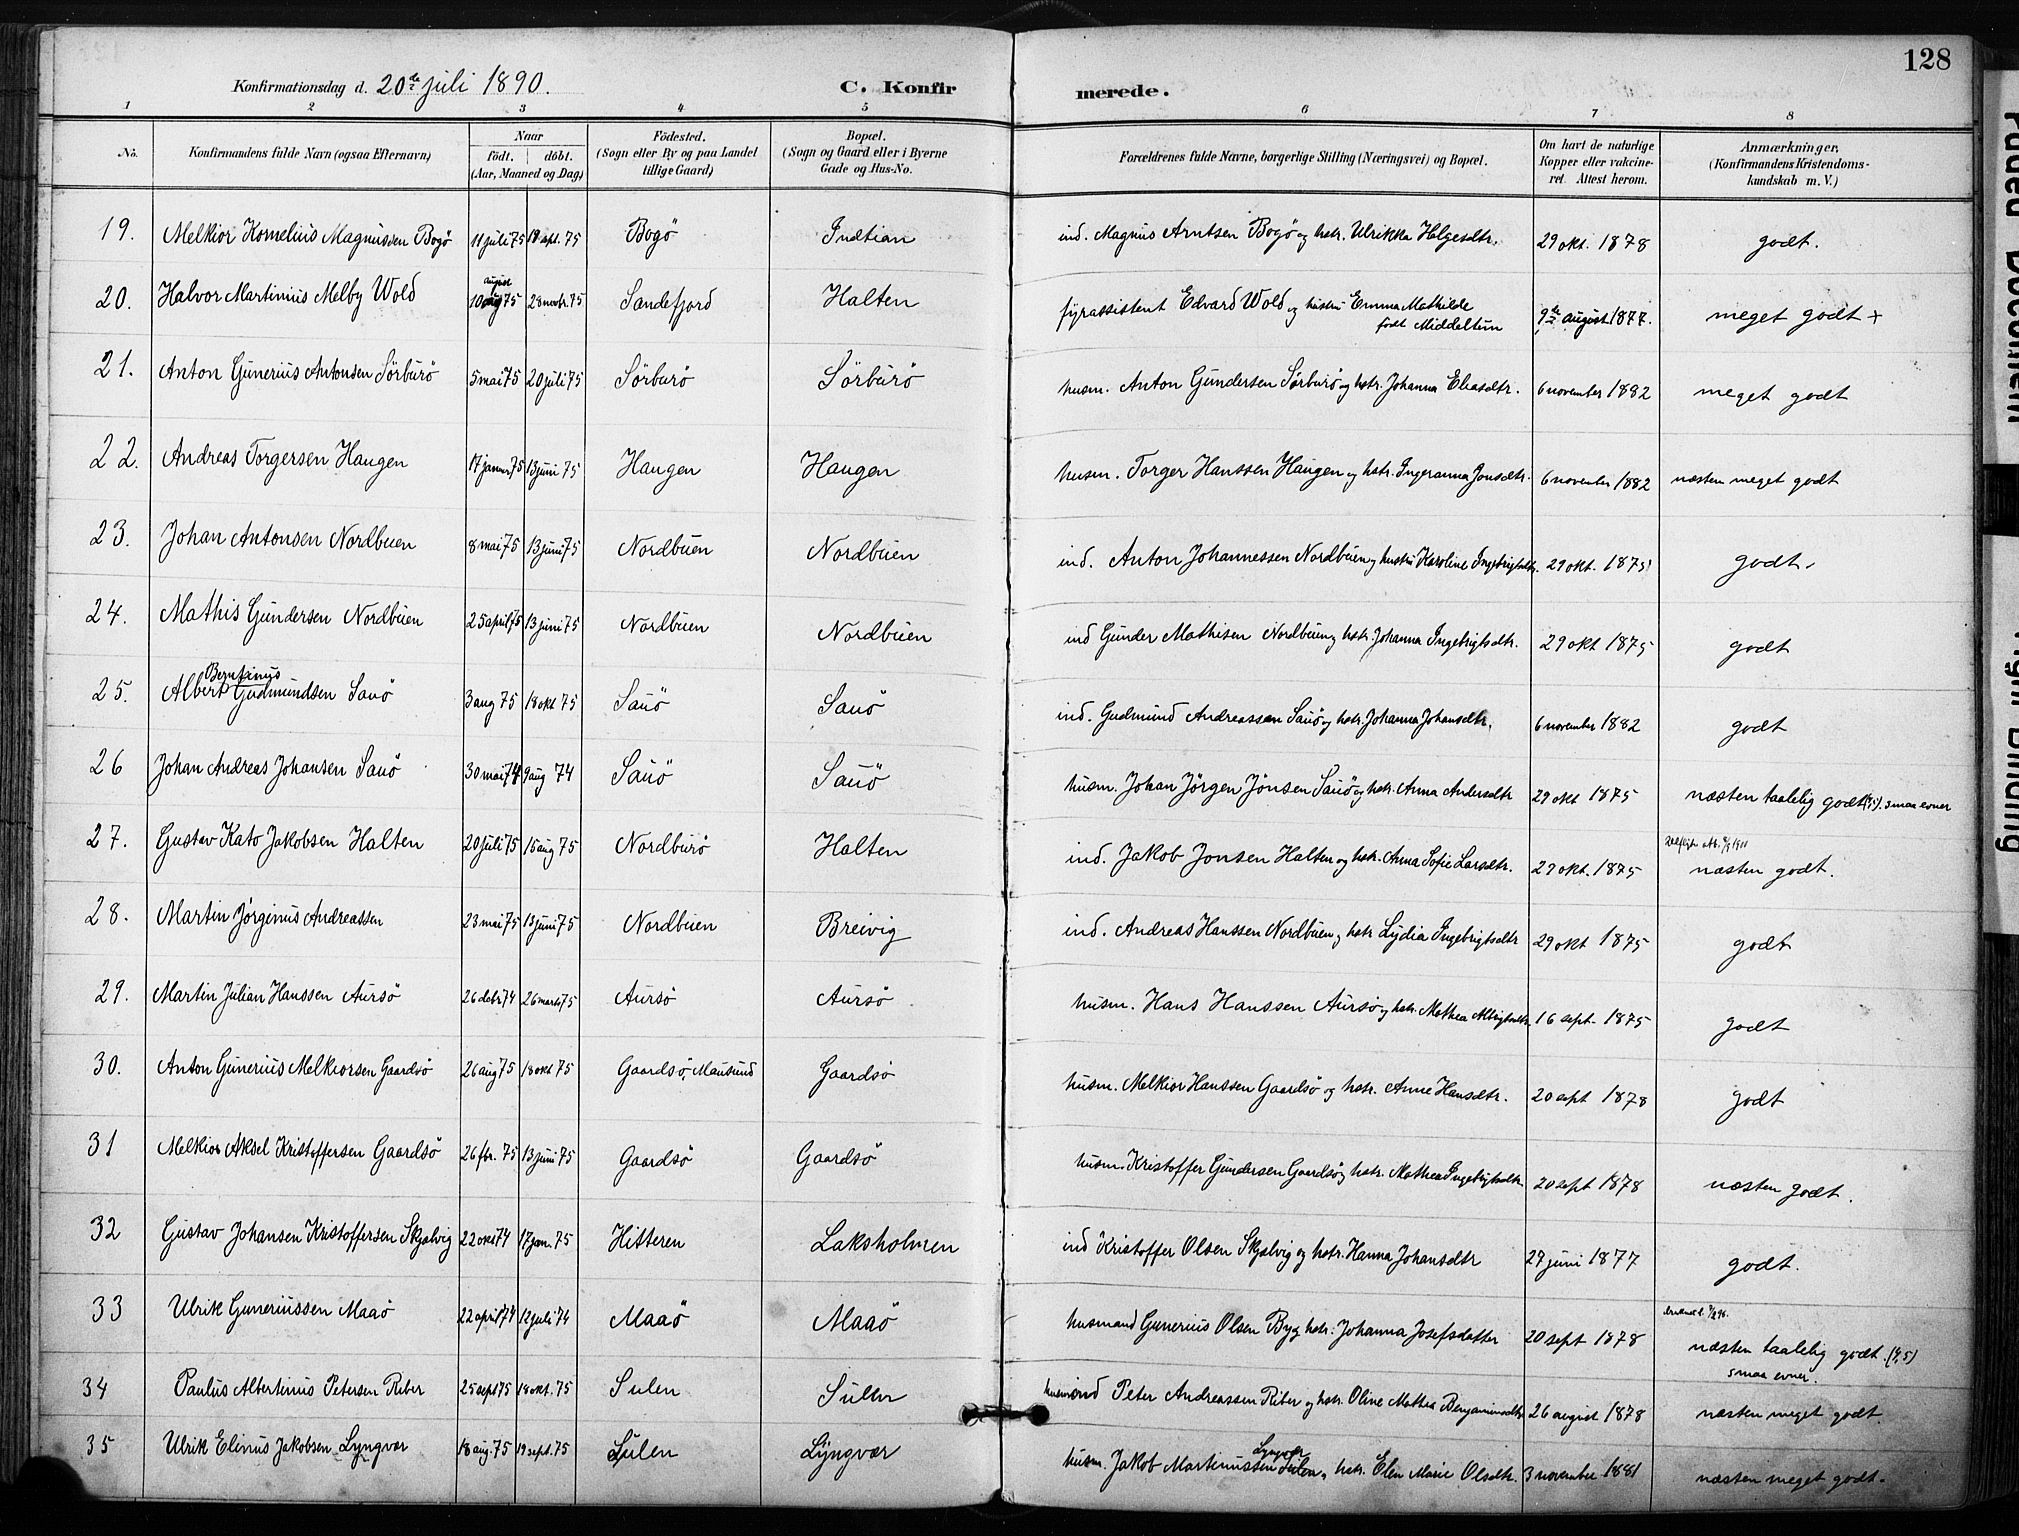 128
Konfirmationsdag d. 20de juli 1890. C. Konfirmerede.
1 2 3 4 5 6 7 8
No. Konfirmandens fulde Navn (ogsaa Efternavn) Naar födt. döbt. (Aar, Maaned og Dag) Födested. (Sogn eller By og paa Landet tillige Gaard) Bopæl. (Sogn og Gaard eller i Byerne Gade og Hus-No. Forældrenes fulde Navne, borgerlige Stilling (Næringsvei) og Bopæl. Om havt de naturlige Kopper eller vakcineret. Attest herom. Anmærkninger, (Konfirmandens Kristendomskundskab m. V.)
19. Melkior Kornelius Magnussen Bogö 11 juli 75 19 spt. 75 Bogö Indtian ind. Magnus Arntsen Bogö og hstr. Ulrikka Helgesdtr. 29 okt. 1878 godt.
20. Halvor Martinius Melby Wold 10 august 75 28 novbr. 75 Sandefjord Halten fyrassistent Edvard Wold og hustru Emma Mathilde født Middeltun 9de august 1877. meget godt +
21. Anton Gunerius Antonsen Sörburö 5 mai 75 20 juli 75 Sörburö Sörburö husm. Anton Gundersen Sörburö og hstr. Johanna Eliasdtr. 6 november 1892 meget godt
22. Andreas Torgersen Haugen 17 januar 75 13 juni 75 Haugen Haugen husm. Torger Hanssen Haugen og hstr. Ingeranna Jonsdtr. 6 november 1882 næsten meget godt
23. Johan Antonsen Nordbuen 8 mai 75 13 juni 75 Nordbuen Nordbuen ind. Anton Johannessen Nordbuen og hustru Karoline Ingebrigtsdtr. 29 okt. 1875 godt.
24. Mathis Gundersen Nordbuen 25 april 75 13 juni 75 Nordbuen Nordbuen ind Gunder Mathisen Nordbuen og hstr. Johanna Ingebrigtsdtr. 29 okt 1875 godt
25. Albert Berntinus Gudmundsen Sauö 3 aug 75 18 okt 75 Sauö Sauö ind. Gudmund Andreassen Sauö og hstr. Johanna Johansdtr. 6 november 1882 godt
26 Johan Andreas Johansen Sauö 30 mai 74 9 aug 74 Sauö Sauö husm. Johan Jörgen Jönsen Sauö og hstr. Anna Andersdtr 29 okt 1875 næsten taalelig godt (4,5). smaa evner
27. Gustav Kato Jakobsen Halten 20 juli 75 15 aug 75 Nordburö Halten ind. Jakob Jonsen Halten og hstr. Anna Sofie Larsdtr. 29 okt. 1875 næsten godt.
28. Martin Jörginus Andreassen 23 mai 75 13 juni 75 Nordbuen Breivig ind. Andreas Hanssen Nordbuen og hstr Lydia Ingebrigtsdtr 29 okt 1875 godt
29. Martin Julian Hanssen Aursö 26 debr 74 26 marts 75 Aursö Aursö husm. Hans Hanssen Aursö og hstr. Mathea Albrigtsdtr. 16 sept. 1875 godt
30. Anton Gunerius Melkiorsen Gaardsö 26 aug 75 18 okt 75 Gaardsö, Mausund Gaardsö husm. Melkior Hanssen Gaardsö og hstr. Anne Hansdtr. 20 sept 1878 godt
31 Melkior Aksel Kristoffersen Gaardsö 26 fbr. 75 13 juni 75 Gaardsö Gaardsö husm. Kristoffer Gundersen Gaardsö og hstr. Mathea Ingebrigtsdtr. 20 sept 1878 næsten godt.
32 Gustav Johansen Kristoffersen Skjølvig 22 okt 74 17 jan. 75 Hitteren Laksholmen ind Kristoffer Olsen Skjølvig og hstr. Hanna Johansdtr 27 juni 1877 godt.
33 Ulrik Guneriussen Maaö 22 april 74 12 juli 74 Maaö Maaö husmand Gunerius Olsen By og hstr. Johanna Josefsdatter 20 sept 1878 næsten taalelig godt. (4,5) smaa evner.
34 Paulus Albertinus Petersen Riber 25 sept 75 18 okt. 75 Sulen Sulen husmand Peter Andreassen Riber og hstr. Oline Mathea Benjaminsdtr 26 august 1878 næsten meget godt.
35 Ulrik Elinus Jakobsen Lyngvær 18 aug. 75 19 sept. 75 Sulen Lyngvær husm. Jakob Martinussen Lyngvær og hstr. Elen Marie Olsdtr. 3 november 1881 næsten meget godt.